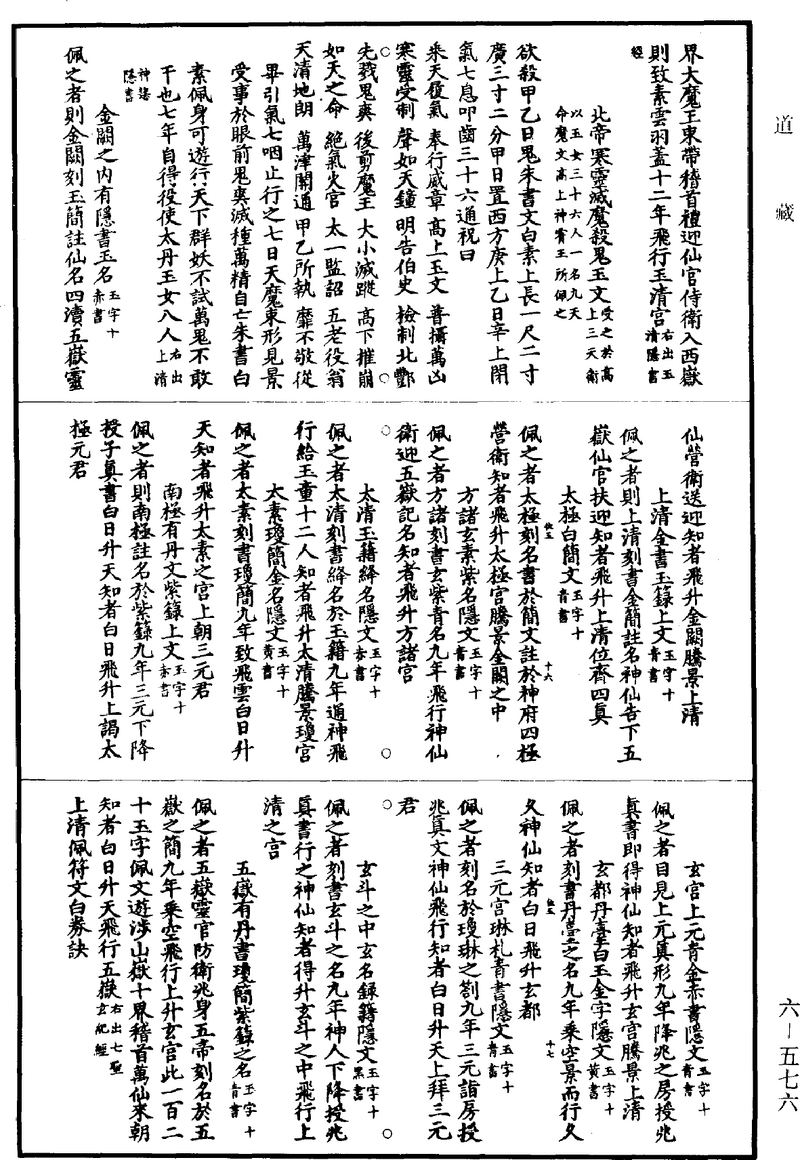 道藏
界大魔王東帶稽首禮迎仙官侍衛入西嶽
則致素雲羽蓋十二年飛行玉清宮右出玉清隱書
經
北帝寒靈滅魔殺鬼玉文受之於高上三天衛
以玉女三十六人一名九天
命魔文高上神霄王所佩之
欲殺甲乙日鬼朱書文白素上長一尺二寸
廣三寸二分甲日置西方庚上乙日辛上閉
氣七息叩齒三十六通祝曰
乘天役氣 奉行威章 高上玉文 普攝萬凶
寒靈受制 聲如天鐘 明告伯史 檢制北酆
先戮鬼爽 後剪魔王 大小滅蹤 高下摧崩
如天之命 絕氣火官 太一監詔 五老役翁
天清地朗 萬津開通 甲乙所執 靡不敬從
畢引氣七咽止行之七日天魔束形見景
受事於眼前鬼爽滅種萬精自亡朱書白
素佩身可遊行天下群妖不試萬鬼不敢
干也七年自得役使太丹玉女八人右出上清
神諾隱書
金闕之內有隱書玉名玉字十赤書
佩之者則金闕刻玉簡註仙名四瀆五嶽靈
仙營衛送迎知者飛升金闕騰景上清
上清金書玉籙上文玉字十青書
佩之者則上清刻書金簡註名神仙告下五
嶽仙官扶迎知者飛升上清位齊四真
太極白簡文玉字十青書
佩之者太極刻名書於簡文註於神府四極
營衛知者飛升太極宮騰景金闕之中
十六
方諸玄素紫名隱文玉字十青書
佩之者方諸刻書玄紫青名九年飛行神仙
衛迎五嶽記名知者飛升方諸宮
太清玉籍絳名隱文玉字十赤書
佩之者太清刻書絳名於玉籍九年通神飛
行給玉童十二人知者飛升太清騰景瓊宮
太素瓊簡金名隱文玉字十黃書
佩之者太素刻書瓊簡九年致飛雲白日升
天知者飛升太素之宮上朝三元君
南極有丹文紫籙上文玉字十赤書
佩之者則南極註名於紫籙九年三元下降
授子真書白日升天知者白日飛升上謁太
極元君
玄宮上元青金赤書隱文玉字十青書
佩之者目見上元真形九年降兆之房授兆
真書即得神仙知者飛升玄宮騰景上清
玄都丹臺白玉金字隱文玉字十黃書
佩之者刻書丹臺之名九年乘空景而行久
十七
久神仙知者白日飛升玄都
三元宮琳札青書隱文玉字十青書
佩之者刻名於瓊琳之劄九年三元詣房授
兆真文神仙飛行知者白日升天上拜三元
君
玄斗之中玄名錄籍隱文玉字十黑書
佩之者刻書玄斗之名九年神人下降授兆
真書行之神仙知者得升玄斗之中飛行上
清之宮
五嶽有丹書瓊簡紫籙之名玉字十青書
佩之者五嶽靈官防衛兆身五帝刻名於五
嶽之簡九年乘空飛行上升玄宮此一百二
十玉字佩文遊涉山嶽十界稽首萬仙來朝
知者白日升天飛行五嶽右出七聖玄紀經
上清佩符文白券訣
六－五七六